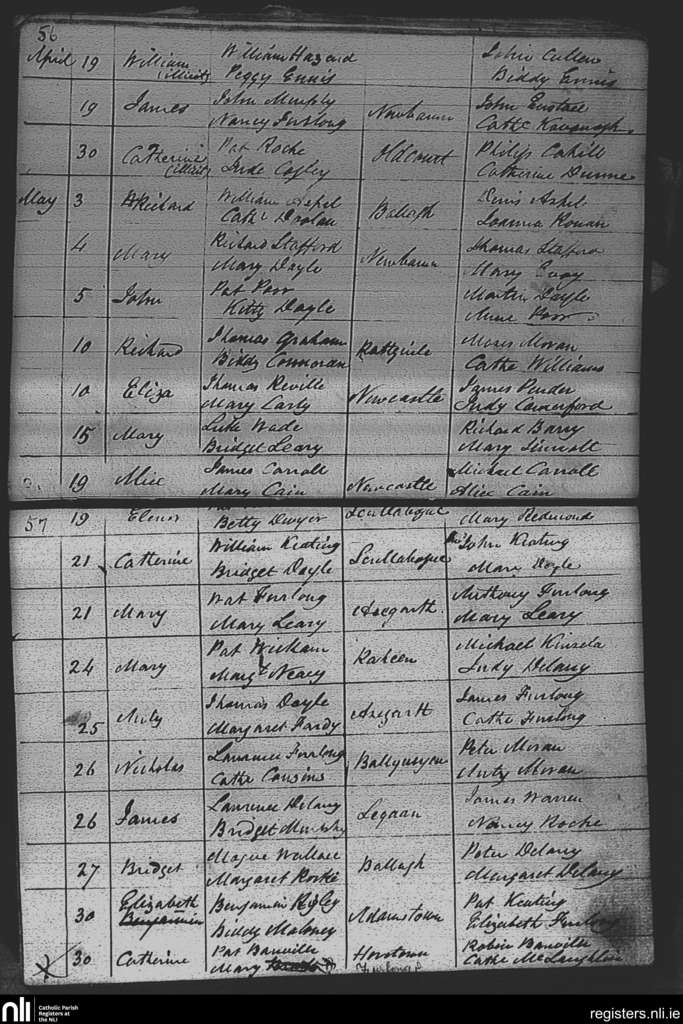 56
April 19 William William Hazard John Cullen
(illicit) Peggy Ennis Biddy Ennis
19 James John Murphy Newbawn John Eustace
Nancy Furlong Cathe Kavanagh
30 Catherine Pat Roche Oldcourt Philip Cahill
(illicit) Jude Cogley Catherine Dunne
May 3 Richard William Aspel Ballagh Denis Aspel
Cathe Doolan Joanna Ronan
4 Mary Richard Stafford Newbawn Thomas Stafford
Mary Doyle Mary
5 John Pat Poor Martin Doyle
Kitty Doyle Anne Poor
10 Richard Thomas Graham Moses Moran
Biddy Connoran Cathe Williams
10 Eliza Thomas Neville Newcastle James Pender
Mary Carty Judy Comerford
15 Mary Luke Wade Richard Barry
Bridget Leary Mary Sinnott
19 Alice James Carroll Newcastle Michael Carroll
Mary Cain Alice Cain
57 19 Elenor Scullabogue
Betty Dwyer Mary Redmond
21 Catherine William Keating Scullabogue John Keating
Bridget Doyle Mary Doyle
21 Mary Wat Furlong Assegarth Anthony Furlong
Mary Leary Mary Leary
24 Mary Pat Wickham Raheen Michael Kinsela
Margt Neary Judy Delany
25 Anty Thomas Doyle Assegarth James Furlong
Margaret Fardy Cathe Furlong
26 Nicholas Laurence Furlong Peter Moran
Cathe Cousins Anty Moran
26 James Laurence Delany Legaan James Warren
Bridget Murphy Nancy Roche
27 Bridget Mogue Wallace Ballagh Peter Delany
Margaret Rorke Margaret Delany
30 Elizabeth Benjamin Rigley Adamstown Pat Keating
Benjamin Biddy Maloney Elizabeth Furlong
30 Catherine Pat Banville Horetown Robin Banville
Mary Furlong Cathe McLaughlin
nli Catholic Parish
Registers at
the NLI
registers.nli.ie